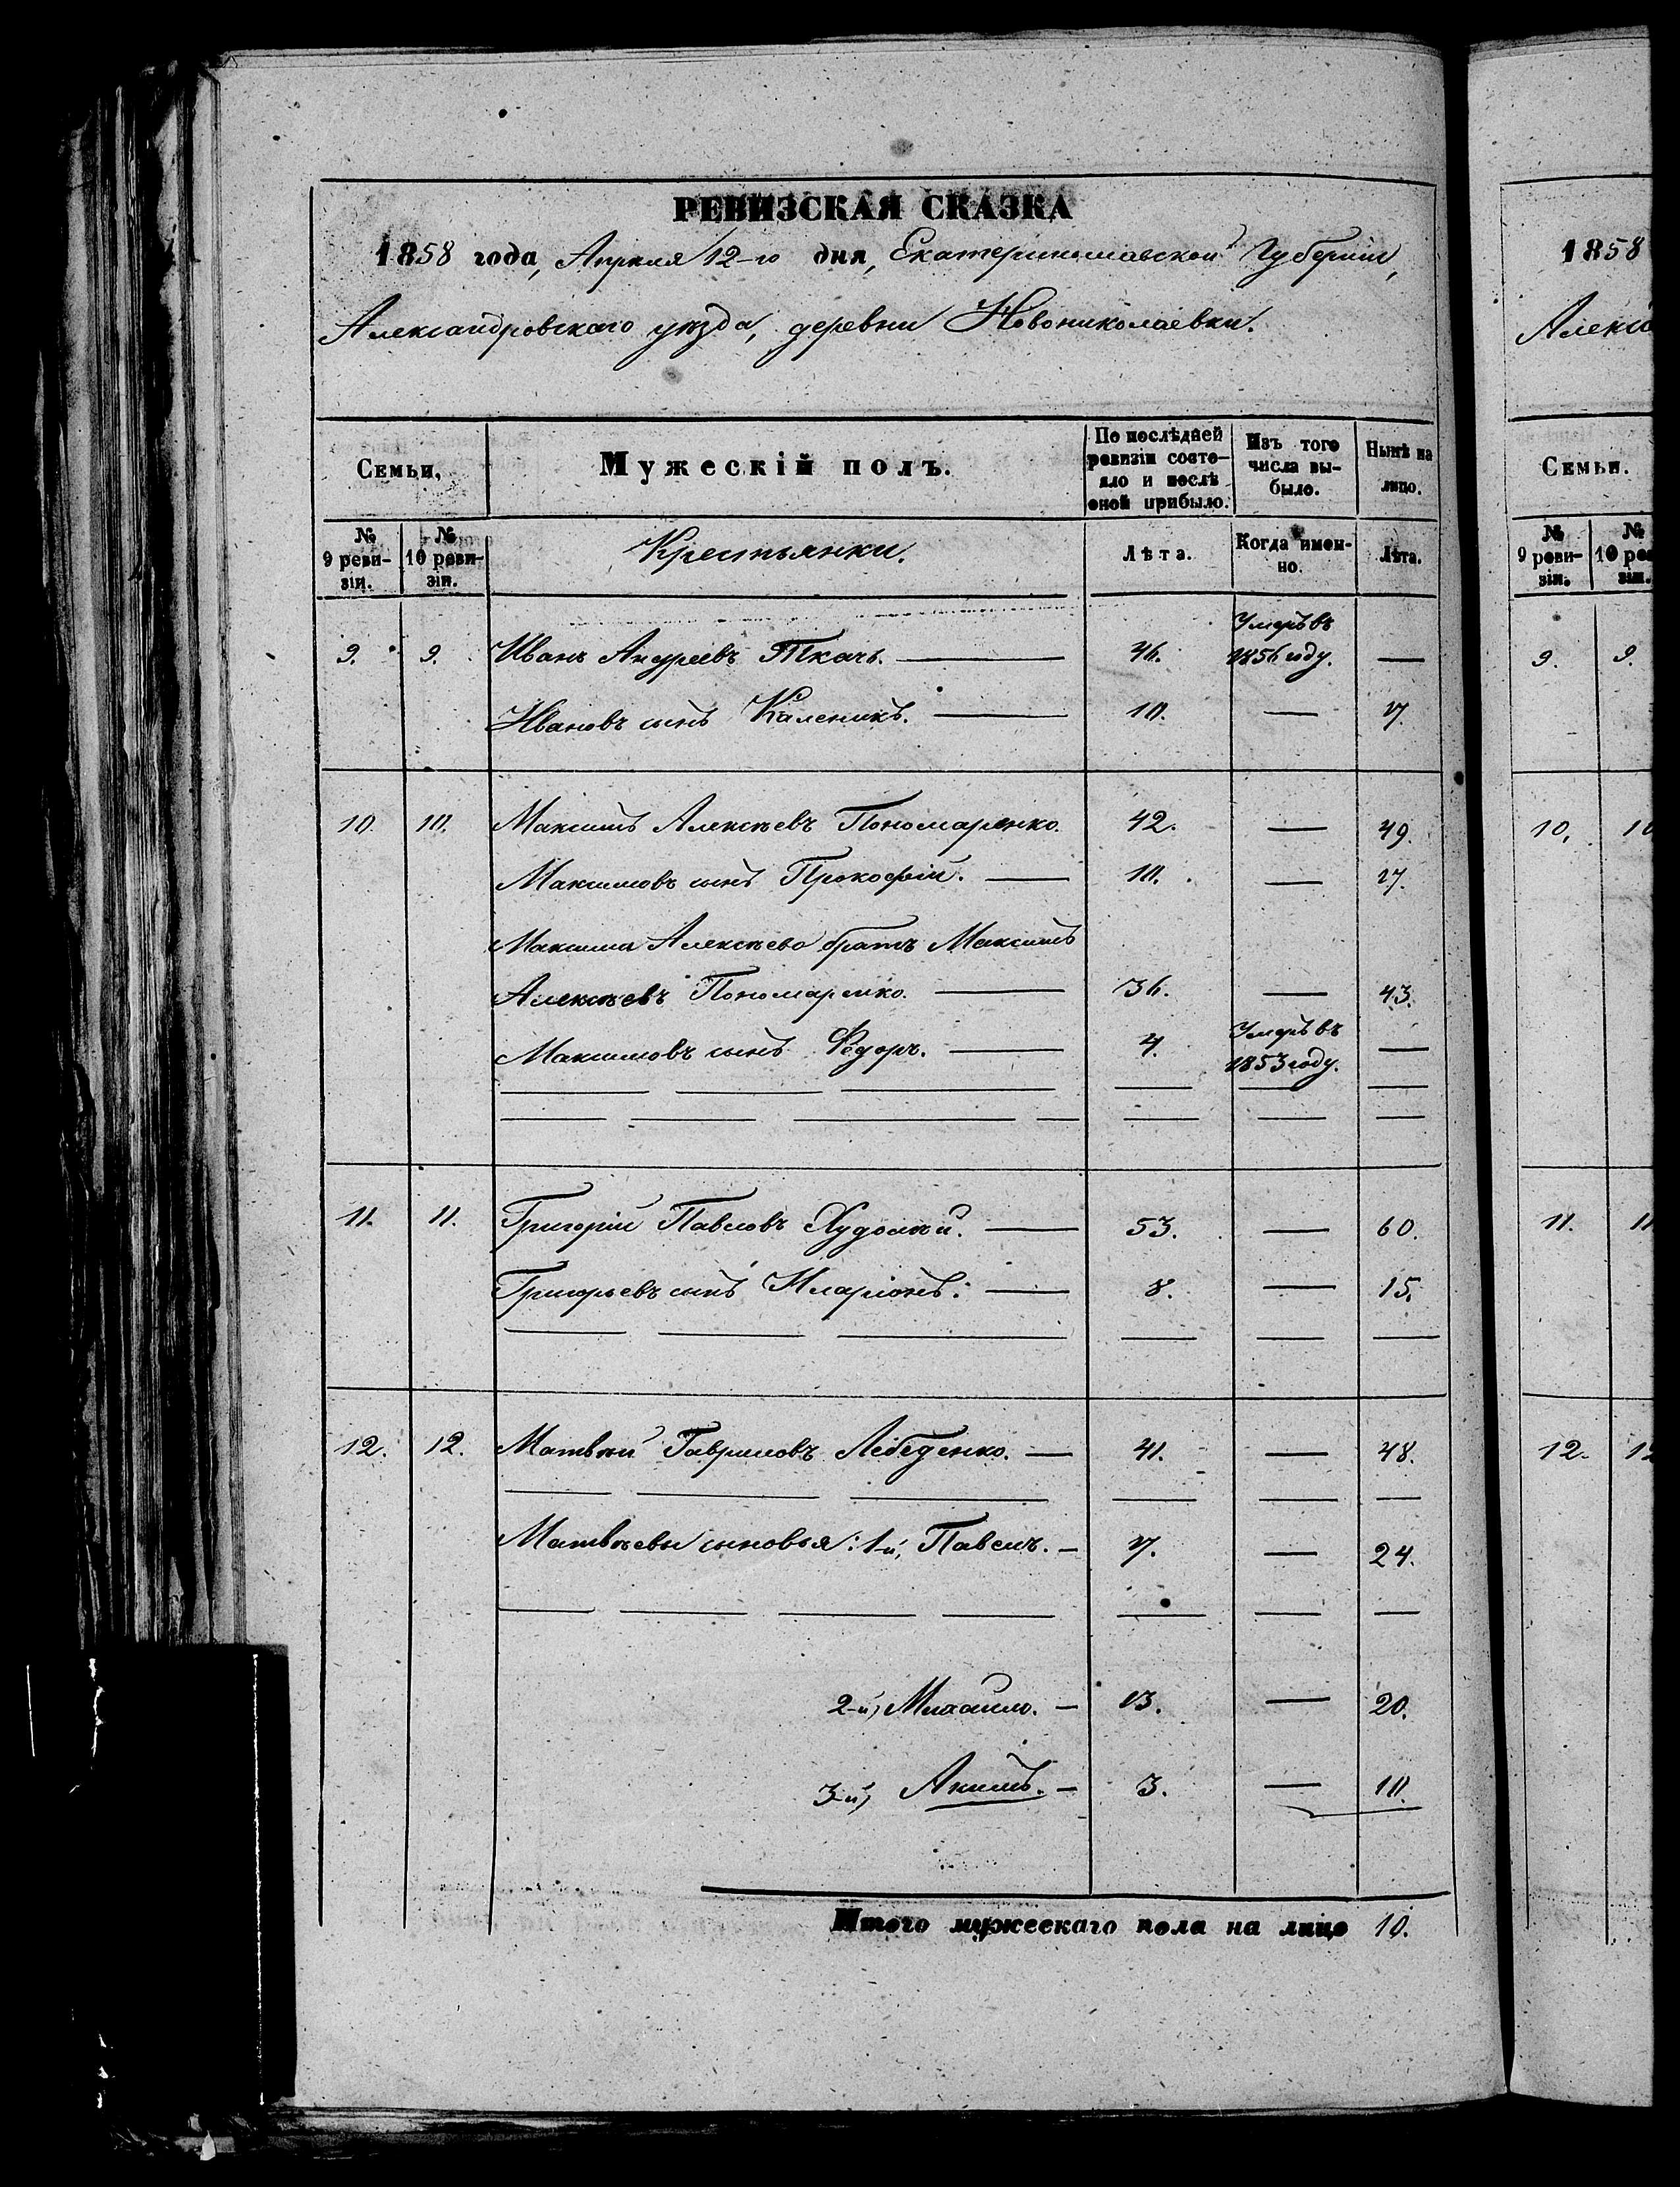 РЕВИЗСКАЯ СКАЗКА
1858 года, Апреля 12-го дня, Екатеринославской Губернии,
Александровскаго уѣзда, деревни Новониколаевки.
Семьи.
Мужескій полъ.
По послѣдней ревизіи состояло и послѣ оной прибыло.
Изъ того числа выбыло.
Нынѣ на лицо.
№ 9 ревизіи.
№ 10 ревизіи.
Крестьянки.
Лѣта.
Когда именно.
Лѣта.
9. 9. Иванъ Андреевъ Ткачъ. — 46. Умеръ въ 1856 году. —
Ивановъ сынъ Каленикъ. — 10. — 17.
10. 10. Максимъ Алексѣевъ Пономаренко. 42. — 49.
Максимовъ сынъ Прокофій. — 10. — 17.
Максима Алексѣева братъ Максимъ
Алексѣевъ Пономаренко. — 36. — 43.
Максимовъ сынъ Федоръ. — 4. Умеръ въ 1853 году. —
11. 11. Григорій Павловъ Худолѣй. — 53. — 60.
Григорьевъ сынъ Иларіонъ. — 8. — 15.
12. 12. Матвѣй Гавриловъ Лебеденко. — 41. — 48.
Матвѣевы сыновья: 1-й, Павелъ. — 17. — 24.
2-й, — 13. — 20.
3-й, Акимъ. — 3. — 10.
Итого мужескаго пола на лицо 10.
1858
Алекса
Семьи.
№ 9 ревизіи.
№ 10 рев
зіи.
9. 9.
10. 10
11. 11
12. 12